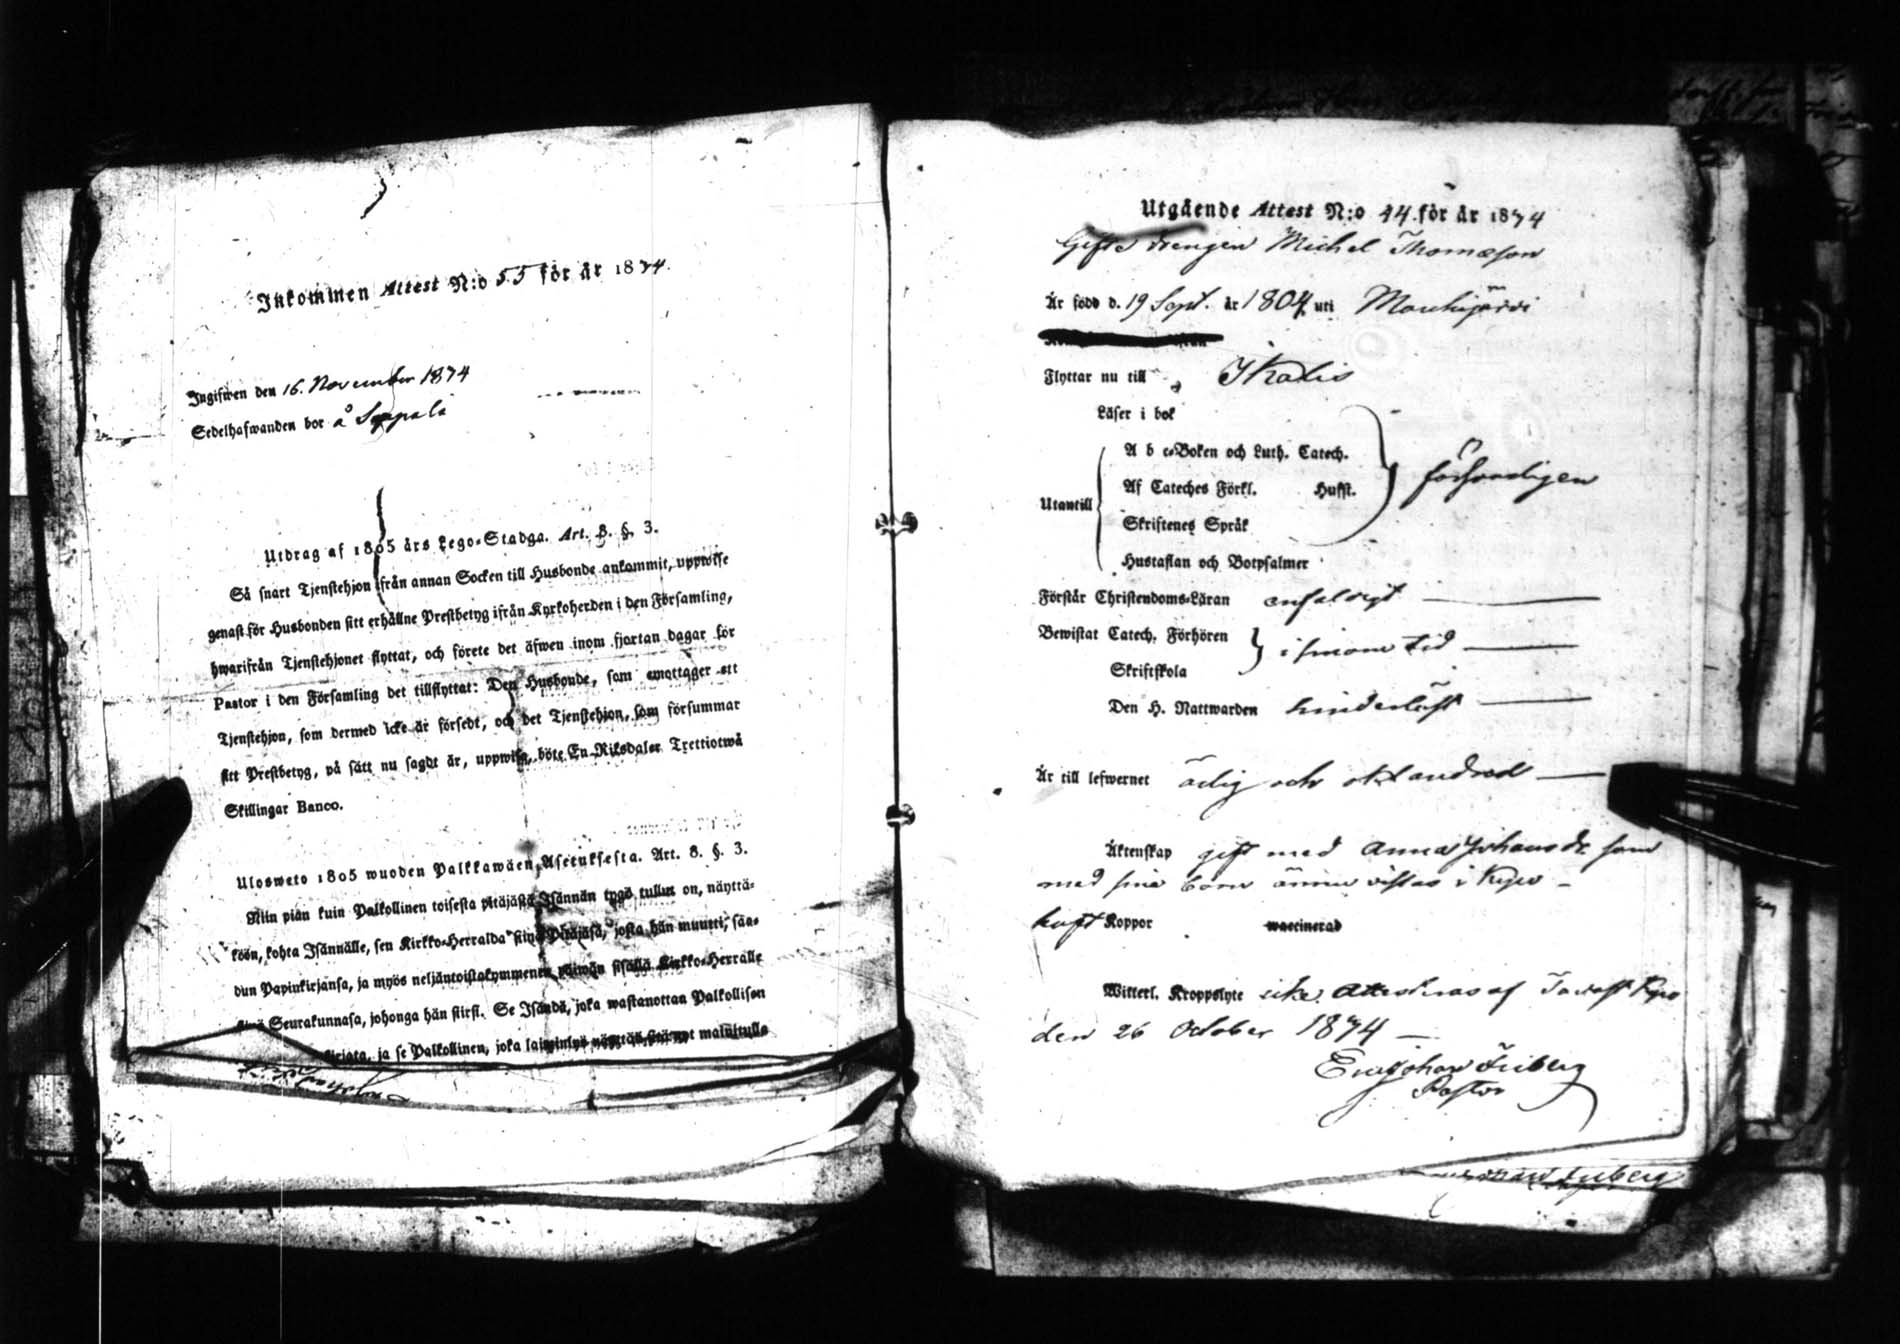 Inkommen Attest N:o 55 för år 1874.
Ingifwen den 16. November 1874
Sedelhafwanden bor å Seppälä
Utdrag af 1805 års Lego-Stadga. Art. 8. §. 3.
Så snart Tjenstehjon ifrån annan Socken till Husbonde ankommit, uppwise
genast för Husbonden sitt erhållne Prestbetyg ifrån Kyrkoherden i den Församling,
hwarifrån Tjenstehjonet flyttat, och förete det äfwen inom fjortan dagar för
Pastor i den Församling det tillflyttat: Den Husbonde, som emottager ett
Tjenstehjon, som dermed icke är försedt, och det Tjenstehjon, som försummar
sitt Prestbetyg, på sätt nu sagdt är, uppwisa, böte En Riksdaler Trettiotwå
Skillingar Banco.
Ulosweto 1805 wuoden Palkkawäen Asetuksesta. Art. 8. §. 3.
Niin pian kuin Palkollinen toisesta pitäjästä Isännän tygö tullut on, näyttä-
köön, kohta Isännälle, sen Kirkko-Herralda siinä Pitäjäsä, josta hän muutti, saa-
dun Papinkirjansa, ja myös neljäntoistakymmenen päiwän sisällä Kirkko-Herralle
siinä Seurakunnasa, johonga hän siirsi. Se Isändä, joka wastanottaa Palkollisen
ja se Palkollinen, joka
Utgående Attest N:o 44. för år 1874
Gifte drengen Michel Thomasson
Är född d. 19 Sept. år 1804 uti Mouhijärvi
Flyttar nu till Ikalis
Läser i bok
A b c-Boken och Luth. Catech.
Utantill Af Cateches Förkl. Hufst. försvarligen
Skriftenes Språk
Hustaflan och Botpsalmer
Förstår Christendoms-Läran enfaldigt
Bewistat Catech. Förhören i sinom tid
Skriftskola
Den H. Nattwarden hinderlöst
Är till lefwernet ärlig och oklandrad
Äktenskap gift med Anna Johansdr som
med sina barn ännu vistas i Kyro
haft Koppor waccinerad
Witterl. Kroppslyte icke. Attesteras af Tavast Kyro
den 26 October 1874
Johan Friberg
Pastor